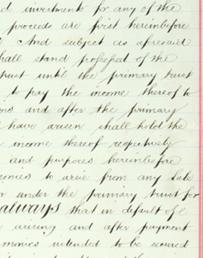 d investments for any of the
proceeds are first hereinbefore
And subject as aforesaid
hall stand possessed of the
trust until the primary trust
to pay the income thereof to
and after the primary
have arisen shall hold the
income thereof respectively
and purposes hereinbefore
monies to arise from any Sale
under the primary trust for
always that in default of
arising and after payment
monies intended to be secured